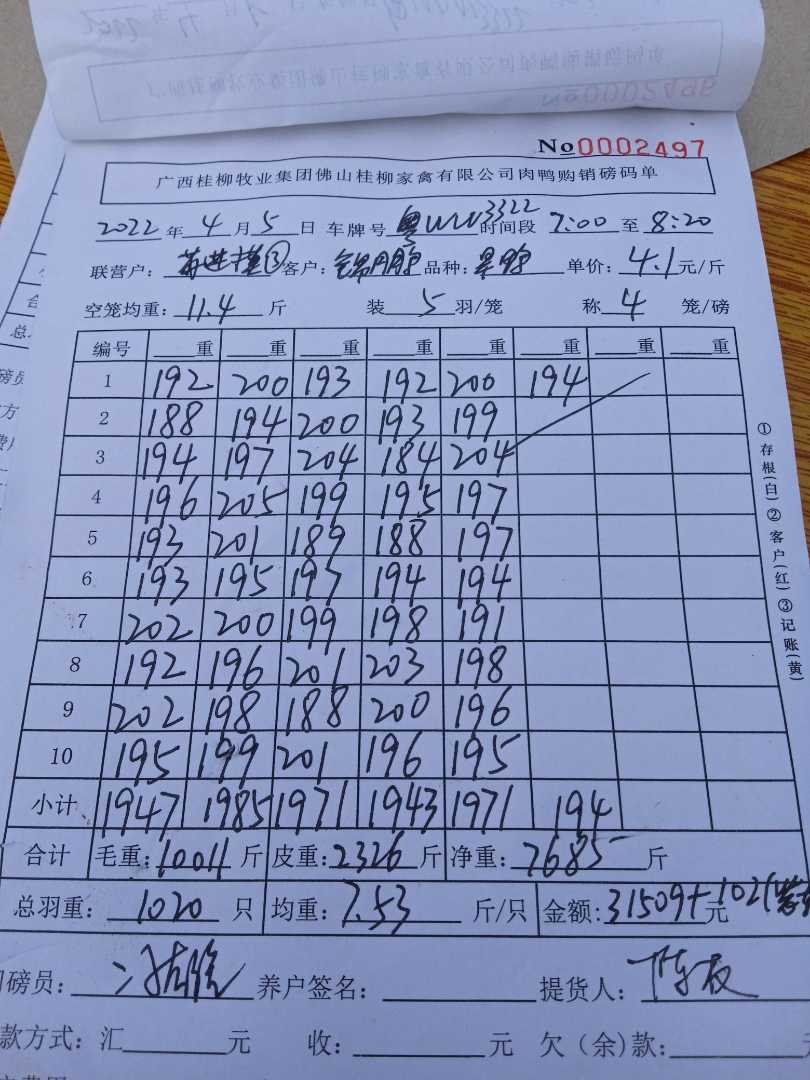 No0002496
No0002497
广西桂柳牧业集团佛山桂柳家禽有限公司肉鸭购销磅码单
2022年4月5日 车牌号 粤WW3322 时间段 7:00 至 8:20
联营户: ③ 客户: 品种: 单价: 4.1元/斤
空笼均重: 11.4 斤 装 5 羽/笼 称 4 笼/磅
编号 重 重 重 重 重 重 重 重
1 192 200 193 192 200 194
2 188 194 200 193 199
3 194 197 204 184 204
4 196 205 199 195 197
5 193 201 189 188 197
6 193 195 197 194 194
7 202 200 199 198 191
8 192 196 201 203 198
9 202 198 188 200 196
10 195 199 201 196 195
小计 1947 1985 1971 1943 1971 194
合计 毛重: 10011 斤 皮重: 2326 斤 净重: 7685 斤
总羽重: 1020 只 均重: 7.53 斤/只 金额: 31509+102 元
磅员: 养户签名: 提货人: 陈
款方式: 汇 元 收: 元 欠(余)款:
①存根(白)②客户(红)③记账(黄)